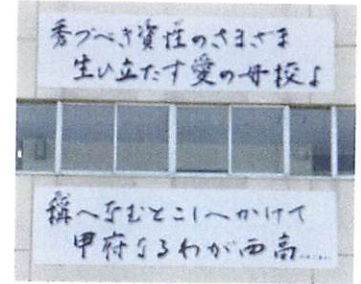 秀づべき資性のさまざま
生ひ立たす愛の母校よ
稱へなむとこしへかけて
甲府なるわが西高